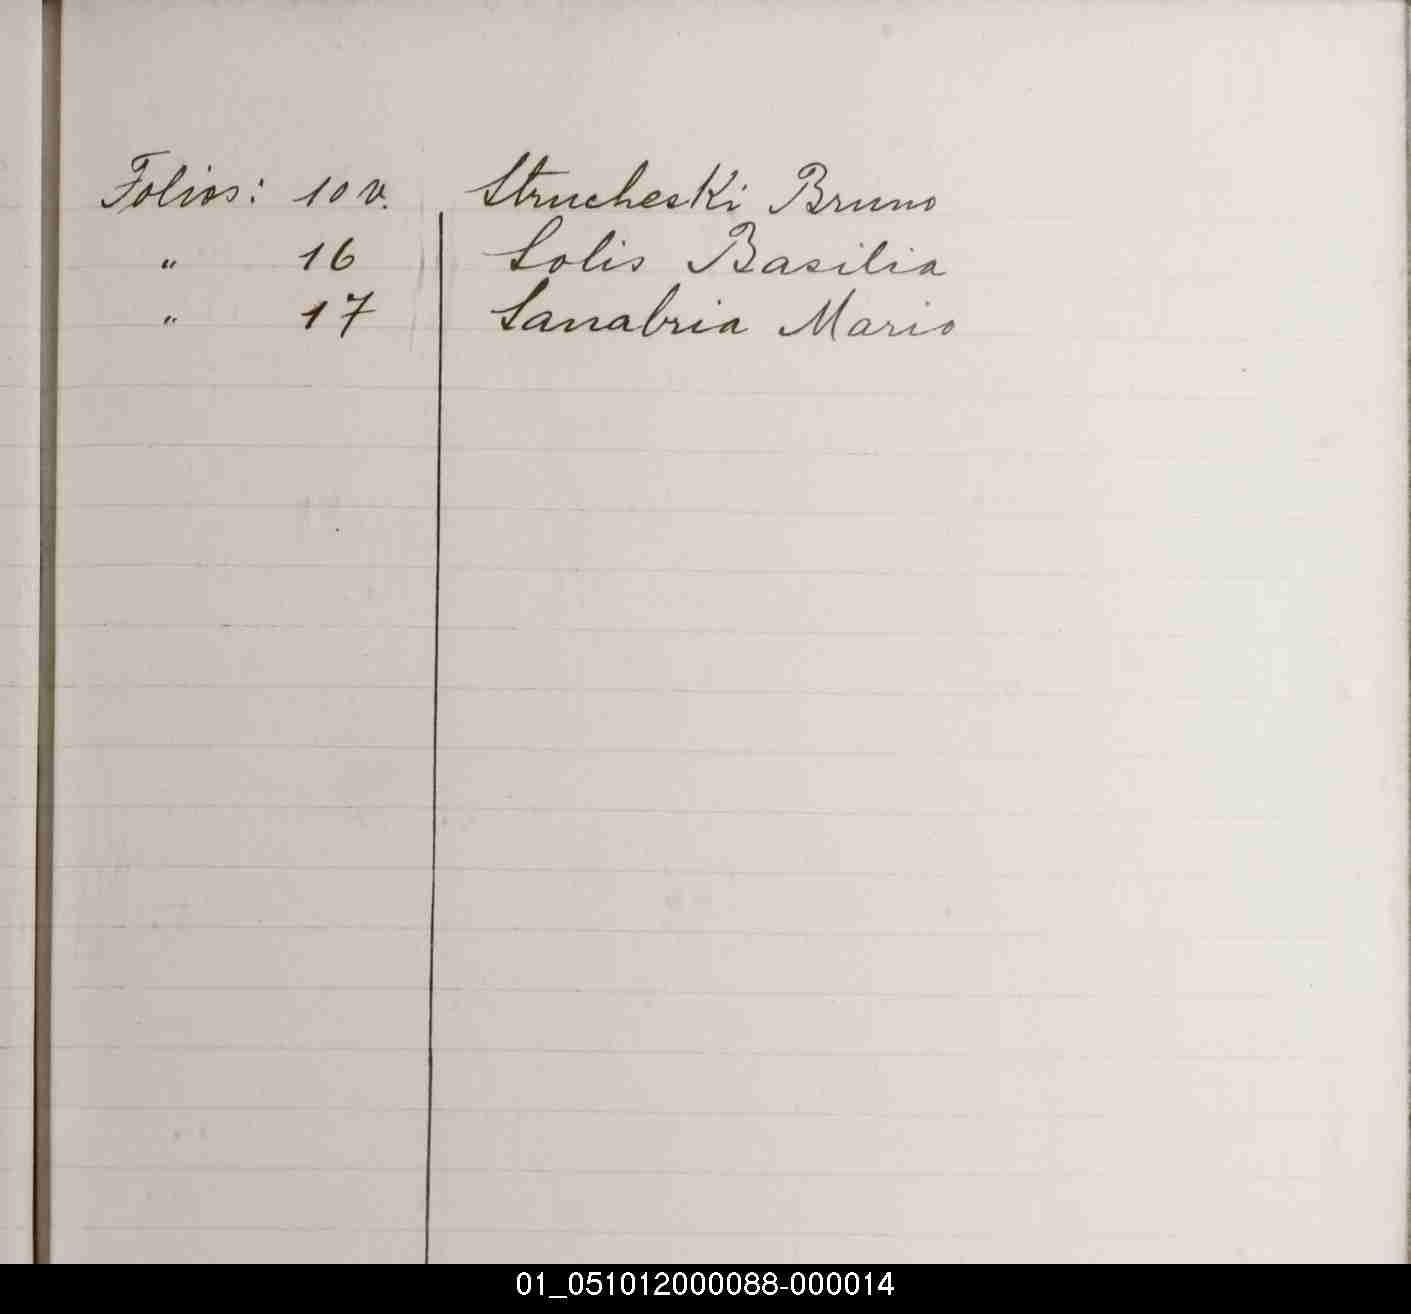 Folios: 10 v. Strucheski Bruno
" 16 Solis Basilia
" 17 Sanabria Mario
01_051012000088-000014